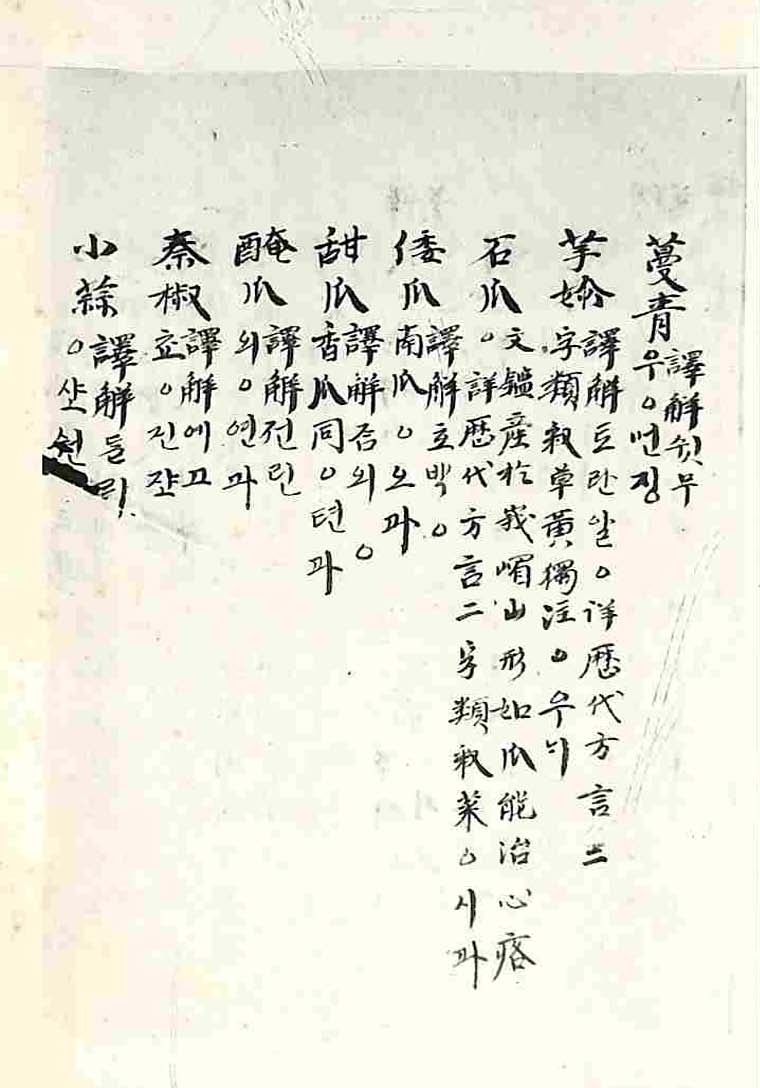 蔓靑 譯解쉿무
우○먼징
芋妳 譯解토란알○详歷代方言二
字類叙草黃獨注○우늬
石瓜○文鑑産於峩嵋山形如瓜能治心痞
○詳歷代方言二字類叙菜○시과
倭瓜 譯解호박○
南瓜○오과
甜瓜 譯解즘외○
香瓜同○텬과
醃瓜 譯解전린
외○연과
秦椒 譯解예고
쵸○진쟌
小蒜 譯解들